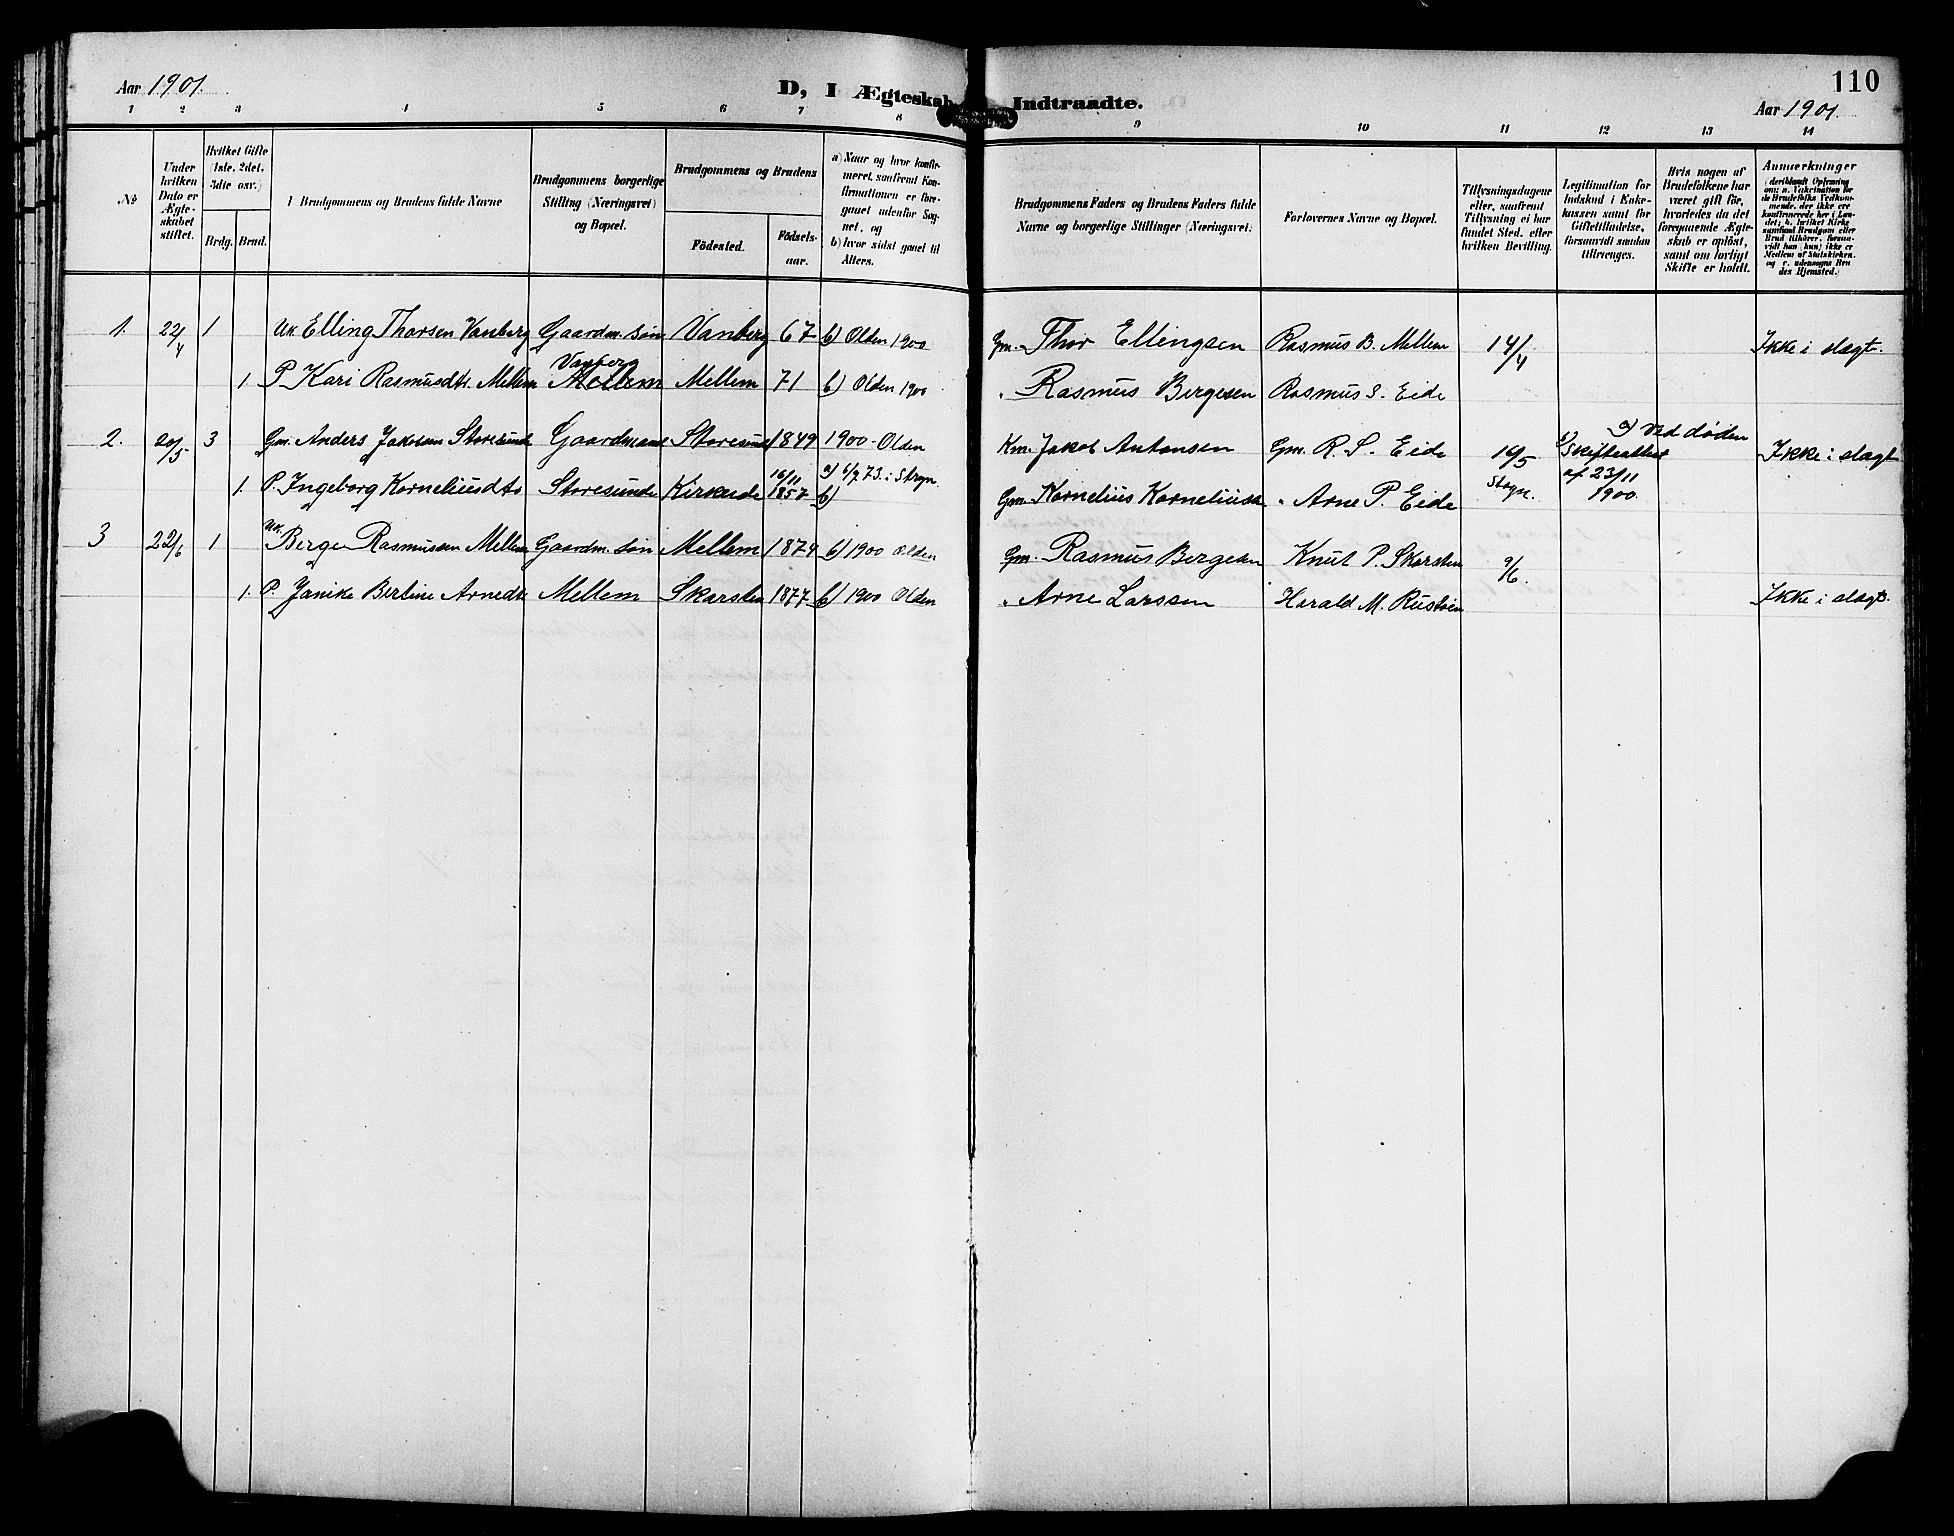 Aar 1901.
D, I Ægteskab Indtraadte.
110
Aar 1901.
1 2 3 4 5 6 7 8 9 10 11 12 13 14
№
Under hvilken Dato er Ægteskabet stiftet.
Hvilket Gifte (1ste, 2det, 3die osv.)
Brdg. Brud.
Brudgommens og Brudens fulde Navne
Brudgommens borgerlige Stilling (Næringsvei) og Bopæl.
Brudgommens og Brudens
Födested.
Födsels-aar.
a) Naar og hvor konfirmeret, saafremt Konfirmationen er foregaaet udenfor Sognet, og
b) hvor sidst gaaet til Alters.
Brudgommens Faders og Brudens Faders fulde Navne og borgerlige Stillinger (Næringsvei)
Forlovernes Navne og Bopæl.
Tillysningsdagene eller, saafremt Tillysning ei har fundet Sted, efter hvilken Bevilling.
Legitimation for Indskud i Enkekassen samt for Giftetilladelse, forsaavidt saadan tiltrænges.
Hvis nogen af Brudefolkene har været gift för, hvorledes da det foregaaende Ægteskab er oplöst, samt om lovligt Skifte er holdt.
Anmærkninger
1. 22/4 1 Uk. Elling Thorsen Vanberg Gaardm. søn Vanberg 67 b) Olden 1900 Gm. Thor Ellingsen Rasmus B. Mellem 14/4 Ikke i slægt.
Vanberg
1. P. Kari Rasmusdtr. Mellem Mellem Mellem 71 b) Olden 1900 " Rasmus Bergesen Rasmus S. Eide
2. 20/5 3 Gm. Anders Jakobsen Storesunde Gaardmand Storesunde 1849 1900 - Olden Km. Jakob Antonsen Gm. R. S. Eide 16/5 Stryn. Skifteattest af 23/11 1900. Ved døden Ikke i slægt
1. P. Ingeborg Korneliusdtr Storesunde Kirkeide 16/11 1857 a) 6/7 73. i Stryn. b) Gm. Kornelius Korneliusen " Arne P. Eide
3 22/6 1 Uk. Berge Rasmussen Mellem Gaardm. søn Mellem 1874 b) 1900 Olden Gm. Rasmus Bergesen Knut P. Skarsten 9/6.
1. P. Janike Berline Arnedtr Mellem Skarsten 1877 b) 1900 Olden " Arne Larssen Harald M. Rustøen Ikke i slægt.